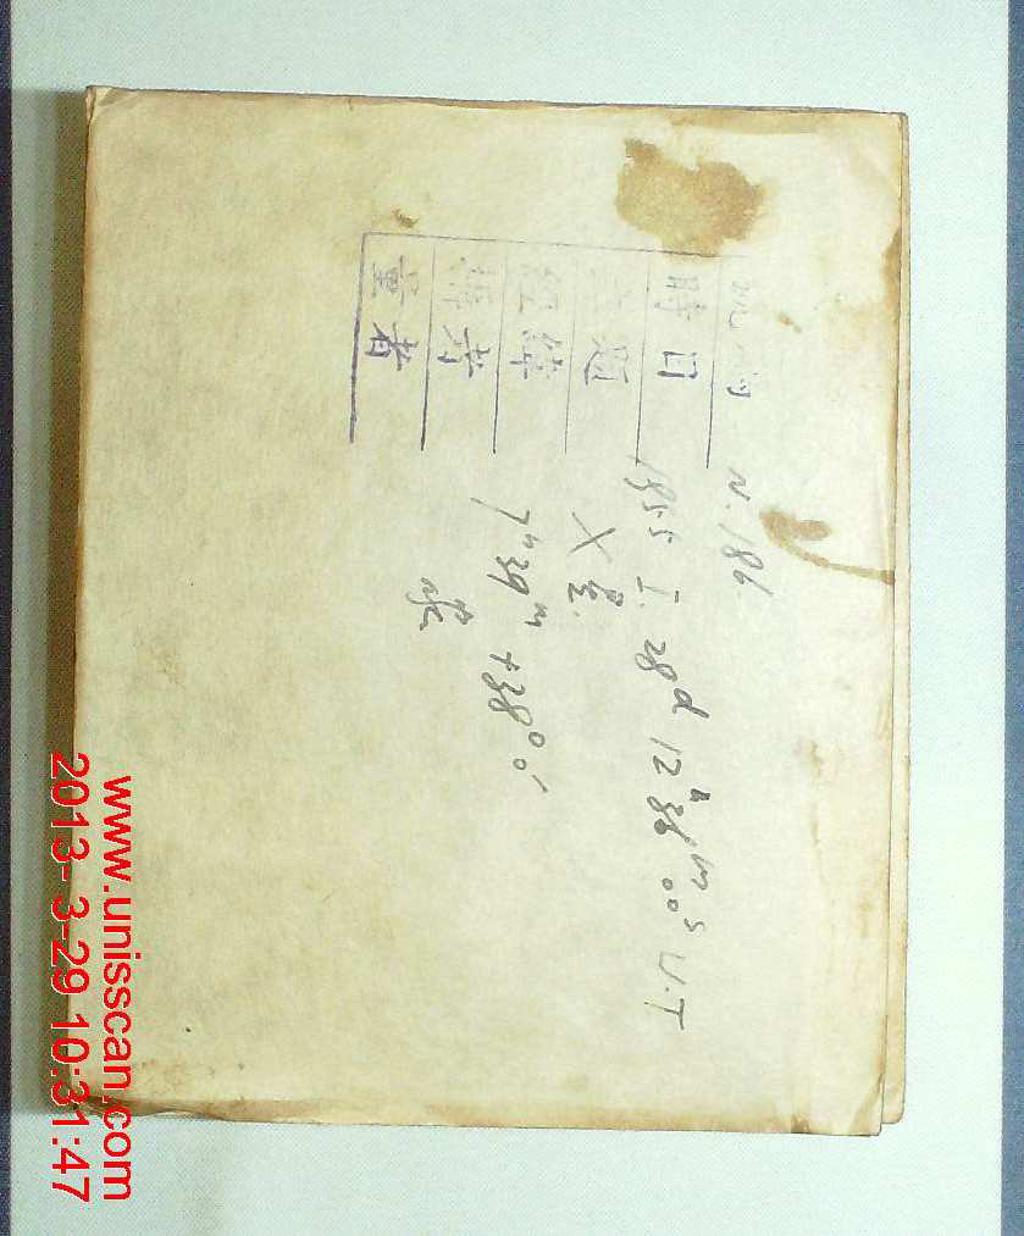 N. 186.
時日 1955 I. 28d 12h 36m 00s U.T
主題 X星.
經緯 7h 39m +38° 0'
攝者 張
量者
www.unisscan.com
2013- 3-29 10:31:47